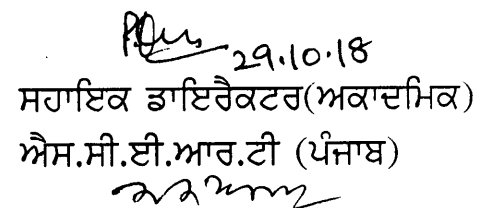 29.10.18
ਸਹਾਇਕ ਡਾਇਰੈਕਟਰ(ਅਕਾਦਮਿਕ)
ਐਸ.ਸੀ.ਈ.ਆਰ.ਟੀ (ਪੰਜਾਬ)